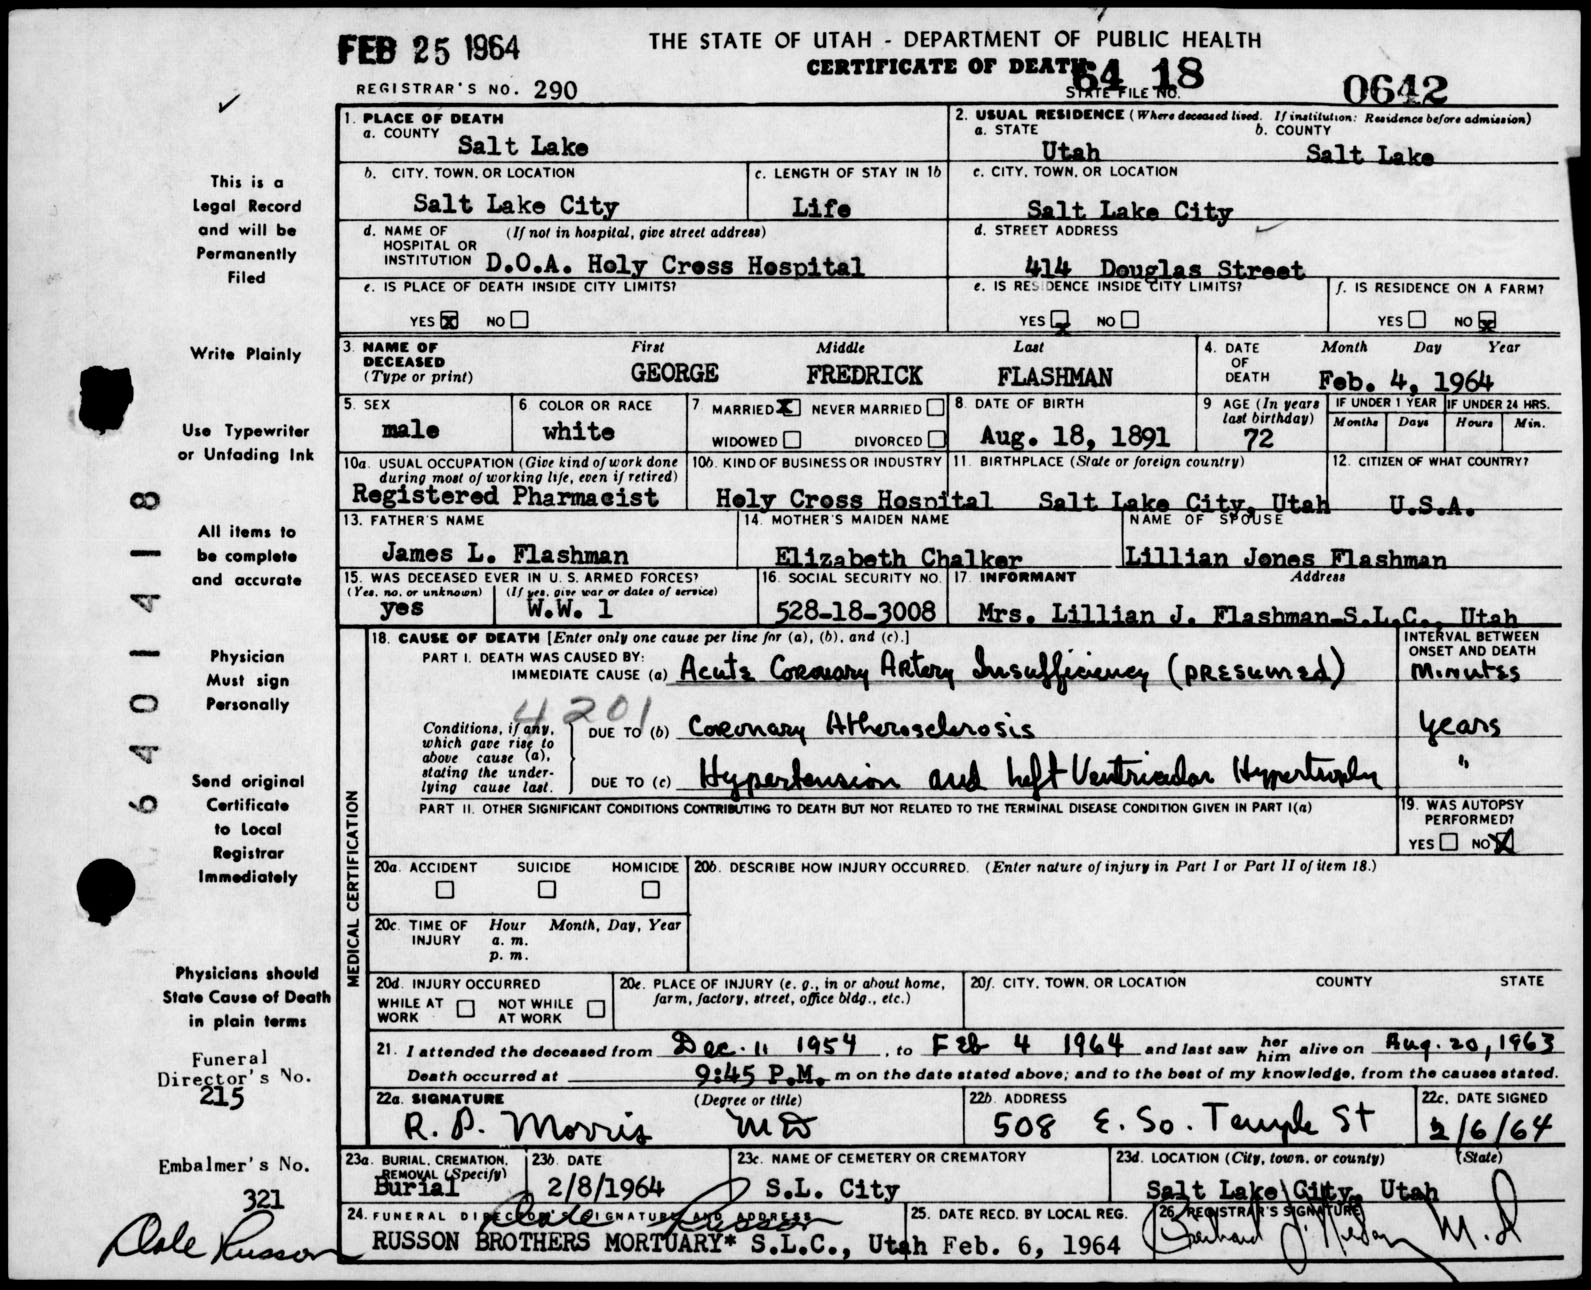 FEB 25 1964
THE STATE OF UTAH - DEPARTMENT OF PUBLIC HEALTH
CERTIFICATE OF DEATH
64 18 0642
REGISTRAR'S NO. 290
STATE FILE NO.
This is a
Legal Record
and will be
Permanently
Filed
Write Plainly
Use Typewriter
or Unfading Ink
All items to
be complete
and accurate
Physician
Must sign
Personally
Send original
Certificate
to Local
Registrar
Immediately
Physicians should
State Cause of Death
in plain terms
Funeral
Director's No.
215
Embalmer's No.
321
Dale Russon
64014 18
1. PLACE OF DEATH
a. COUNTY
Salt Lake
2. USUAL RESIDENCE (Where deceased lived. If institution: Residence before admission)
a. STATE b. COUNTY
Utah Salt Lake
b. CITY, TOWN, OR LOCATION
Salt Lake City
c. LENGTH OF STAY IN 1b
Life
c. CITY, TOWN, OR LOCATION
Salt Lake City
d. NAME OF (If not in hospital, give street address)
HOSPITAL OR
INSTITUTION D.O.A. Holy Cross Hospital
d. STREET ADDRESS
414 Douglas Street
e. IS PLACE OF DEATH INSIDE CITY LIMITS?
YES X NO
e. IS RESIDENCE INSIDE CITY LIMITS?
YES X NO
f. IS RESIDENCE ON A FARM?
YES NO X
3. NAME OF
DECEASED
(Type or print)
First Middle Last
GEORGE FREDRICK FLASHMAN
4. DATE
OF
DEATH
Month Day Year
Feb. 4, 1964
5. SEX
male
6 COLOR OR RACE
white
7. MARRIED X NEVER MARRIED
WIDOWED DIVORCED
8. DATE OF BIRTH
Aug. 18, 1891
9 AGE (In years
last birthday)
72
IF UNDER 1 YEAR
Months Days
IF UNDER 24 HRS.
Hours Min.
10a. USUAL OCCUPATION (Give kind of work done
during most of working life, even if retired)
Registered Pharmacist
10b. KIND OF BUSINESS OR INDUSTRY
Holy Cross Hospital
11. BIRTHPLACE (State or foreign country)
Salt Lake City, Utah
12. CITIZEN OF WHAT COUNTRY?
U.S.A.
13. FATHER'S NAME
James L. Flashman
14. MOTHER'S MAIDEN NAME
Elizabeth Chalker
NAME OF SPOUSE
Lillian Jones Flashman
15. WAS DECEASED EVER IN U. S. ARMED FORCES?
(Yes, no, or unknown) (If yes, give war or dates of service)
yes W.W. 1
16. SOCIAL SECURITY NO.
528-18-3008
17. INFORMANT Address
Mrs. Lillian J. Flashman-S.L.C., Utah
MEDICAL CERTIFICATION
18. CAUSE OF DEATH [Enter only one cause per line for (a), (b), and (c).]
INTERVAL BETWEEN
ONSET AND DEATH
PART I. DEATH WAS CAUSED BY:
IMMEDIATE CAUSE (a) Acute Coronary Artery Insufficiency (presumed) Minutes
4201
Conditions, if any,
which gave rise to
above cause (a),
stating the under-
lying cause last.
DUE TO (b) Coronary Atherosclerosis years
DUE TO (c) Hypertension and Left Ventricular Hypertrophy "
PART II. OTHER SIGNIFICANT CONDITIONS CONTRIBUTING TO DEATH BUT NOT RELATED TO THE TERMINAL DISEASE CONDITION GIVEN IN PART I(a)
19. WAS AUTOPSY
PERFORMED?
YES NO X
20a. ACCIDENT SUICIDE HOMICIDE
20b. DESCRIBE HOW INJURY OCCURRED. (Enter nature of injury in Part I or Part II of item 18.)
20c. TIME OF Hour Month, Day, Year
INJURY a. m.
p. m.
20d. INJURY OCCURRED
WHILE AT NOT WHILE
WORK AT WORK
20e. PLACE OF INJURY (e. g., in or about home,
farm, factory, street, office bldg., etc.)
20f. CITY, TOWN, OR LOCATION COUNTY STATE
21. I attended the deceased from Dec. 11 1954, to Feb 4 1964 and last saw her him alive on Aug. 20, 1963
Death occurred at 9:45 P.M. m on the date stated above; and to the best of my knowledge, from the causes stated.
22a. SIGNATURE (Degree or title)
R. P. Morris MD
22b. ADDRESS
508 E. So. Temple St
22c. DATE SIGNED
2/6/64
23a. BURIAL, CREMATION,
REMOVAL (Specify)
Burial
23b. DATE
2/8/1964
23c. NAME OF CEMETERY OR CREMATORY
S.L. City
23d. LOCATION (City, town, or county) (State)
Salt Lake City, Utah
24. FUNERAL DIRECTOR'S SIGNATURE AND ADDRESS
Dale Russon
RUSSON BROTHERS MORTUARY* S.L.C., Utah
25. DATE RECD. BY LOCAL REG.
Feb. 6, 1964
26. REGISTRAR'S SIGNATURE
M.D